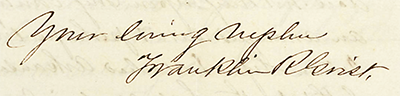 Your loving Nephew
Franklin R Crist.